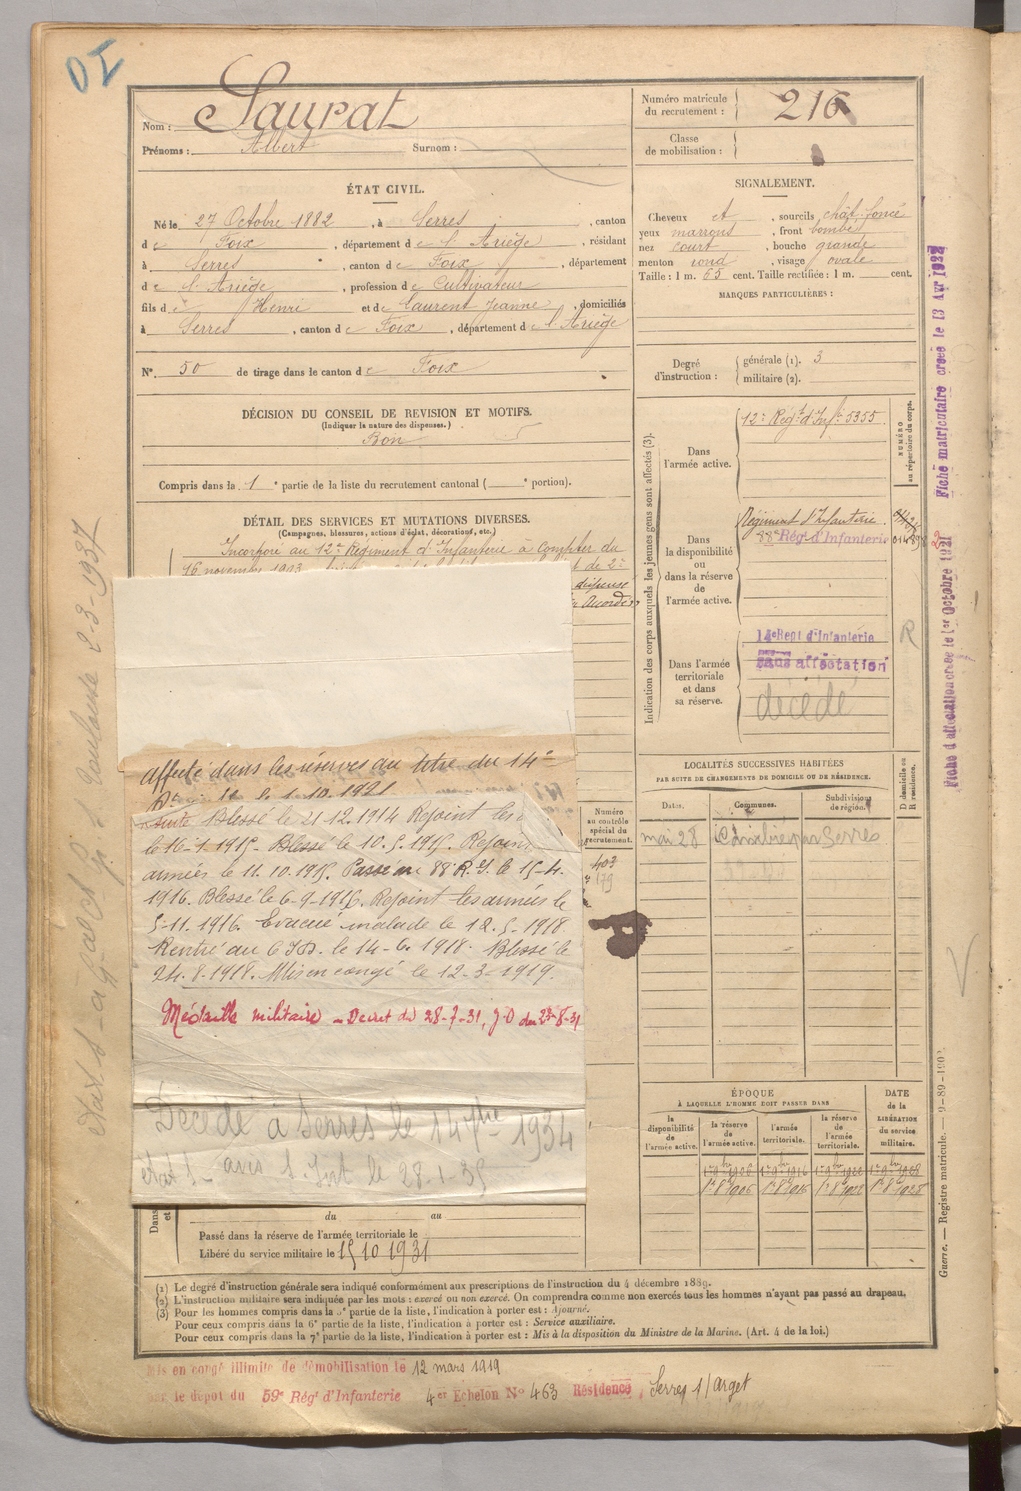 Nom : Saurat
Prénoms : Albert Surnom :
ÉTAT CIVIL.
Né le 27 Octobre 1882, à Serres, canton
de Foix, département de l'Ariège, résidant
à Serres, canton de Foix, département
de l'Ariège, profession de Cultivateur
fils de Henri et de Laurent Jeanne, domiciliés
à Serres, canton de Foix, département de l'Ariège
N° 50 de tirage dans le canton de Foix
DÉCISION DU CONSEIL DE REVISION ET MOTIFS.
(Indiquer la nature des dispenses.)
Bon
Compris dans la 1e partie de la liste du recrutement cantonal ( e portion).
DÉTAIL DES SERVICES ET MUTATIONS DIVERSES.
(Campagnes, blessures, actions d'éclat, décorations, etc.)
Incorporé au 12e Régiment d'Infanterie à compter du
16 novembre 1903 et de 2e
dispense
Accordé
Affecté dans les réserves au titre du 14e
le 1.10.1921
Suite Blessé le 21-12-1914 Rejoint les
le 16-1-1915. Blessé le 10.5.1915. Rejoint
armées le 11.10.1915. Passé au 88e R.I. le 15-4.
1916. Blessé le 6-9-1916. Rejoint les armées le
5-11.1916. Evacué malade le 12.5.1918.
Rentré au le 14-6.1918. Blessé le
24.8.1918. Mis en congé le 12-3-1919.
Médaille militaire – Décret du 28-7-31, J.O du 23-8-31
Décédé à Serres le 14 1934
avis le 28-1-35
du au
Passé dans la réserve de l'armée territoriale le
Libéré du service militaire le 15 10 1931
Numéro matricule du recrutement : 216
Classe de mobilisation :
SIGNALEMENT.
Cheveux et, sourcils chât. foncé
yeux marrons, front bombé
nez court, bouche grande
menton rond, visage ovale
Taille : 1 m. 65 cent. Taille rectifiée : 1 m. cent.
MARQUES PARTICULIÈRES :
Degré d'instruction : générale (1). 3
militaire (2).
Indication des corps auxquels les jeunes gens sont affectés (3).
NUMÉRO au répertoire du corps.
Dans l'armée active.
12e Régt d'Infie 5355
Dans la disponibilité ou dans la réserve de l'armée active.
Régiment d'Infanterie
88e Régt d'Infanterie
Dans l'armée territoriale et dans sa réserve.
14e Regt d'Infanterie
sans affectation
décédé
R
Numéro au contrôle spécial du recrutement.
403
179
LOCALITÉS SUCCESSIVES HABITÉES
PAR SUITE DE CHANGEMENTS DE DOMICILE OU DE RÉSIDENCE.
Dates. Communes. Subdivisions de région. D domicile ou R résidence.
mai 28 par Serres
ÉPOQUE
À LAQUELLE L'HOMME DOIT PASSER DANS
DATE de la LIBÉRATION du service militaire.
la disponibilité de l'armée active. la réserve de l'armée active. l'armée territoriale. la réserve de l'armée territoriale.
(1) Le degré d'instruction générale sera indiqué conformément aux prescriptions de l'instruction du 4 décembre 1889.
(2) L'instruction militaire sera indiquée par les mots : exercé ou non exercé. On comprendra comme non exercés tous les hommes n'ayant pas passé au drapeau.
(3) Pour les hommes compris dans la 5e partie de la liste, l'indication à porter est : Ajourné.
Pour ceux compris dans la 6e partie de la liste, l'indication à porter est : Service auxiliaire.
Pour ceux compris dans la 7e partie de la liste, l'indication à porter est : Mis à la disposition du Ministre de la Marine. (Art. 4 de la loi.)
Mis en congé illimité de démobilisation le 12 mars 1919
par le dépôt du 59e Régt d'Infanterie 4e Echelon N° 463 Résidence : Serres s/arget
Fiche matriculaire créée le 13 Avr 1932
Fiche d'affectation créée le 1er Octobre 1921
Guerre. — Registre matricule.
Toulouse 2-3-1937